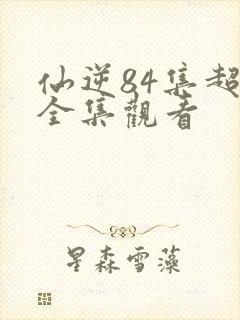 仙逆84集超
全集觀看
星森雪藻